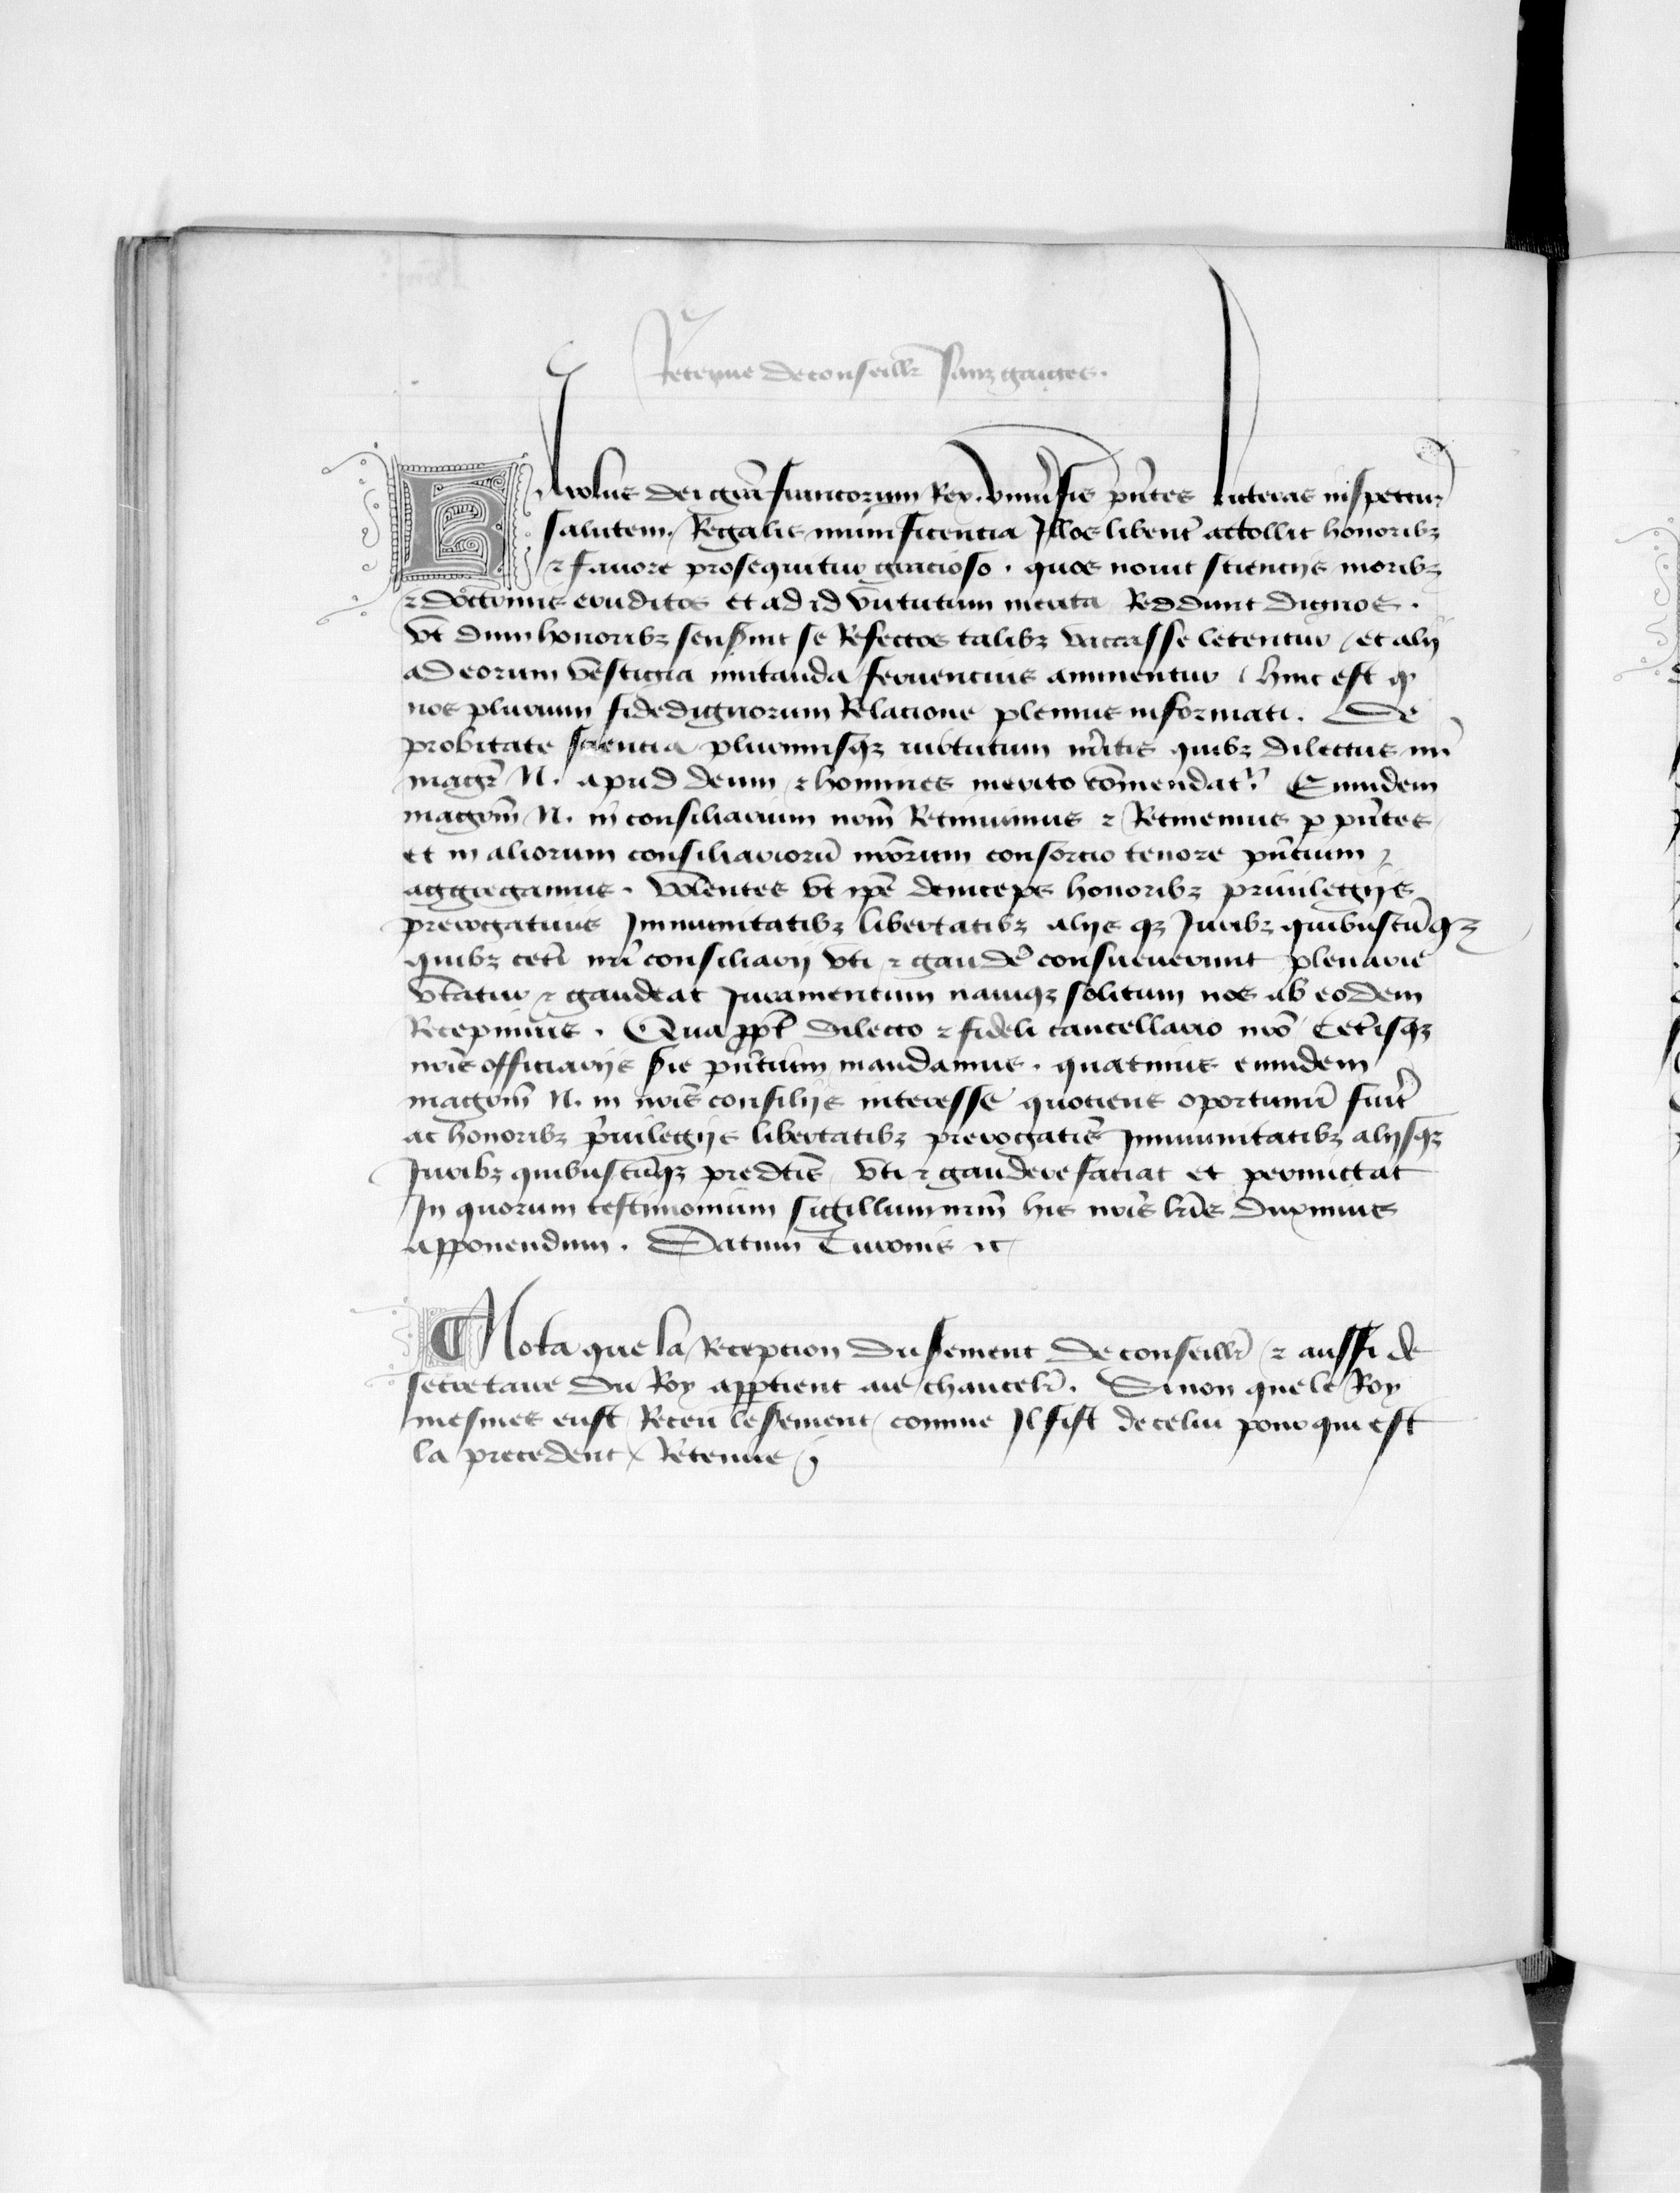 Retenue de conseillr̄ sanz gaiges.
Karolus dei gr̄a francorum Rex. vniuersis p̄ntes litteras inspectur̄
salutem. Regalis munificencia Illos libent̄ attollit honoribꝫ
⁊ fauore prosequitur gracioso. quos nouit sciencijs moribꝫ
⁊ doctrinis eruditos et ad id virtutum merita Reddunt dignos.
vt dum honoribꝫ senserint se Refectos talibꝫ vaccasse letentur / et alij
ad eorum vestigia imitanda feruencius animentur / hinc est ꝙ
nos plurium fidedignorum Relacione plenius informati. De
probitate sciencia plurimisqꝫ virtutum mer̄itis quibꝫ dilectus nr̄
magr̄ N. apud deum ⁊ homines merito com̄endatr̄. Eumdem
magr̄m N. in consiliarium nrm̄ Retinuimus ⁊ Retinemus ꝑ p̄ntes
et in aliorum consiliariorū nr̄orum consorcio tenore p̄ncium
aggregamus. Volentes vt ip̄e deinceps honoribꝫ priuilegijs
prerogatiuis Immunitatibꝫ libertatibꝫ alijsqꝫ Juribꝫ quibuscūqꝫ
quibꝫ cetī nr̄i consiliarij vti ⁊ gaudē consueuerunt plenarie
vtatur ⁊ gaudeat Juramentum namqꝫ solitum nos ab eodem
Recepimus. Qua ꝓpt̄ dilecto ⁊ fideli cancellario nr̄o Cet̄isqꝫ
nr̄is officiarijs serie p̄ncium mandamus. quatinus eumdem
magr̄m N. in nr̄is consilijs interesse quotiens oportunū fuīt
ac honoribꝫ p̄uilegijs libertatibꝫ prerogatiīs Immunitatibꝫ alijsqꝫ
Juribꝫ quibuscūqꝫ predc̄is vti ⁊ gaudere faciat et permittat
In quorum testimonium sigillum nrm̄ his nr̄is lr̄is duximus
apponendum. Datum Turonis ⁊c
¶ Nota que la Reception du serment de conseillr̄ ⁊ aussi de
secretaire du Roy apꝑtient au chancelr̄. Sinon que le Roy
mesmes eust Receu le serment comme Il fist de celui pour qui est
la precedent Retenue